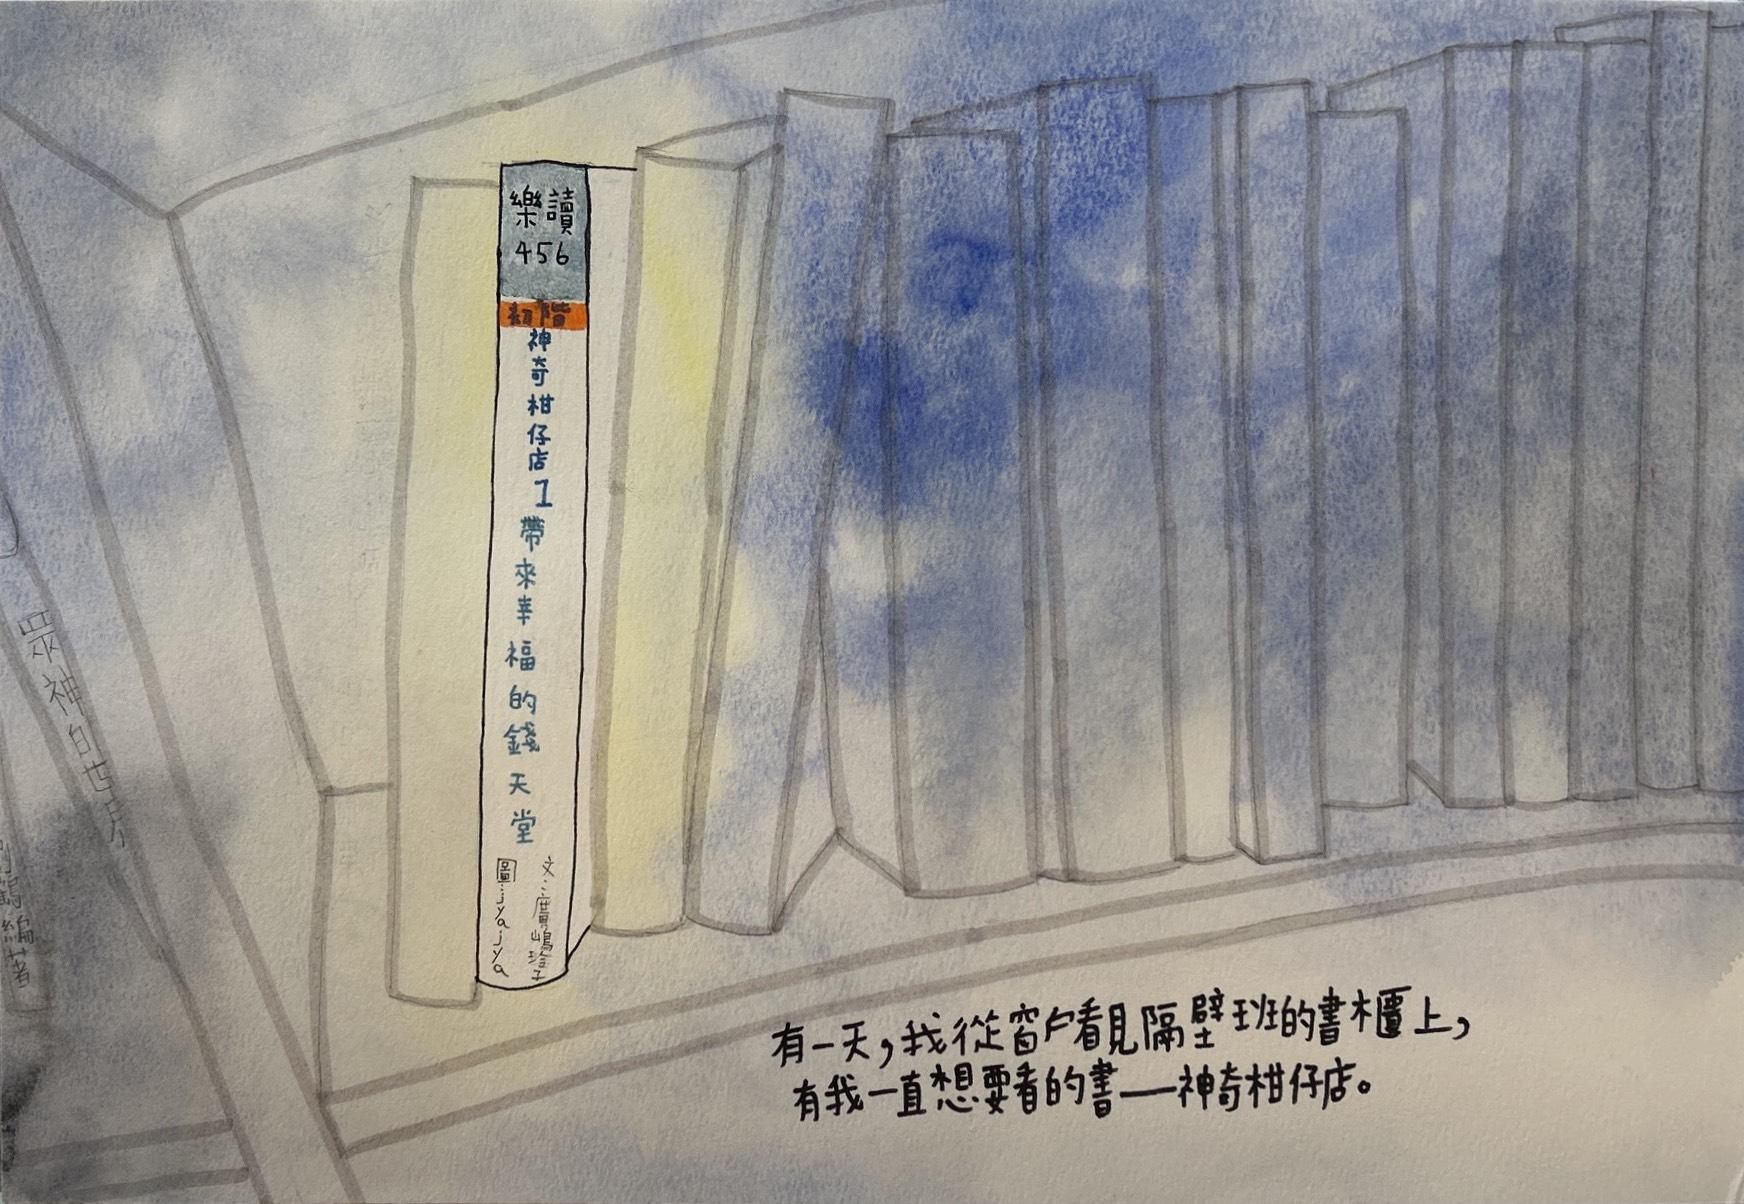 樂讀
456
初階
神奇柑仔店1帶來幸福的錢天堂
文：廣嶋玲子
圖：jyajya
眾神的世界
編著
有一天，我從窗戶看見隔壁班的書櫃上，
有我一直想要看的書──神奇柑仔店。